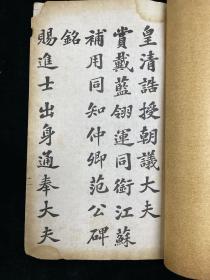 皇清誥授朝議大夫
賞戴藍翎運同銜江蘇
補用同知仲卿范公碑
銘
賜進士出身通奉大夫